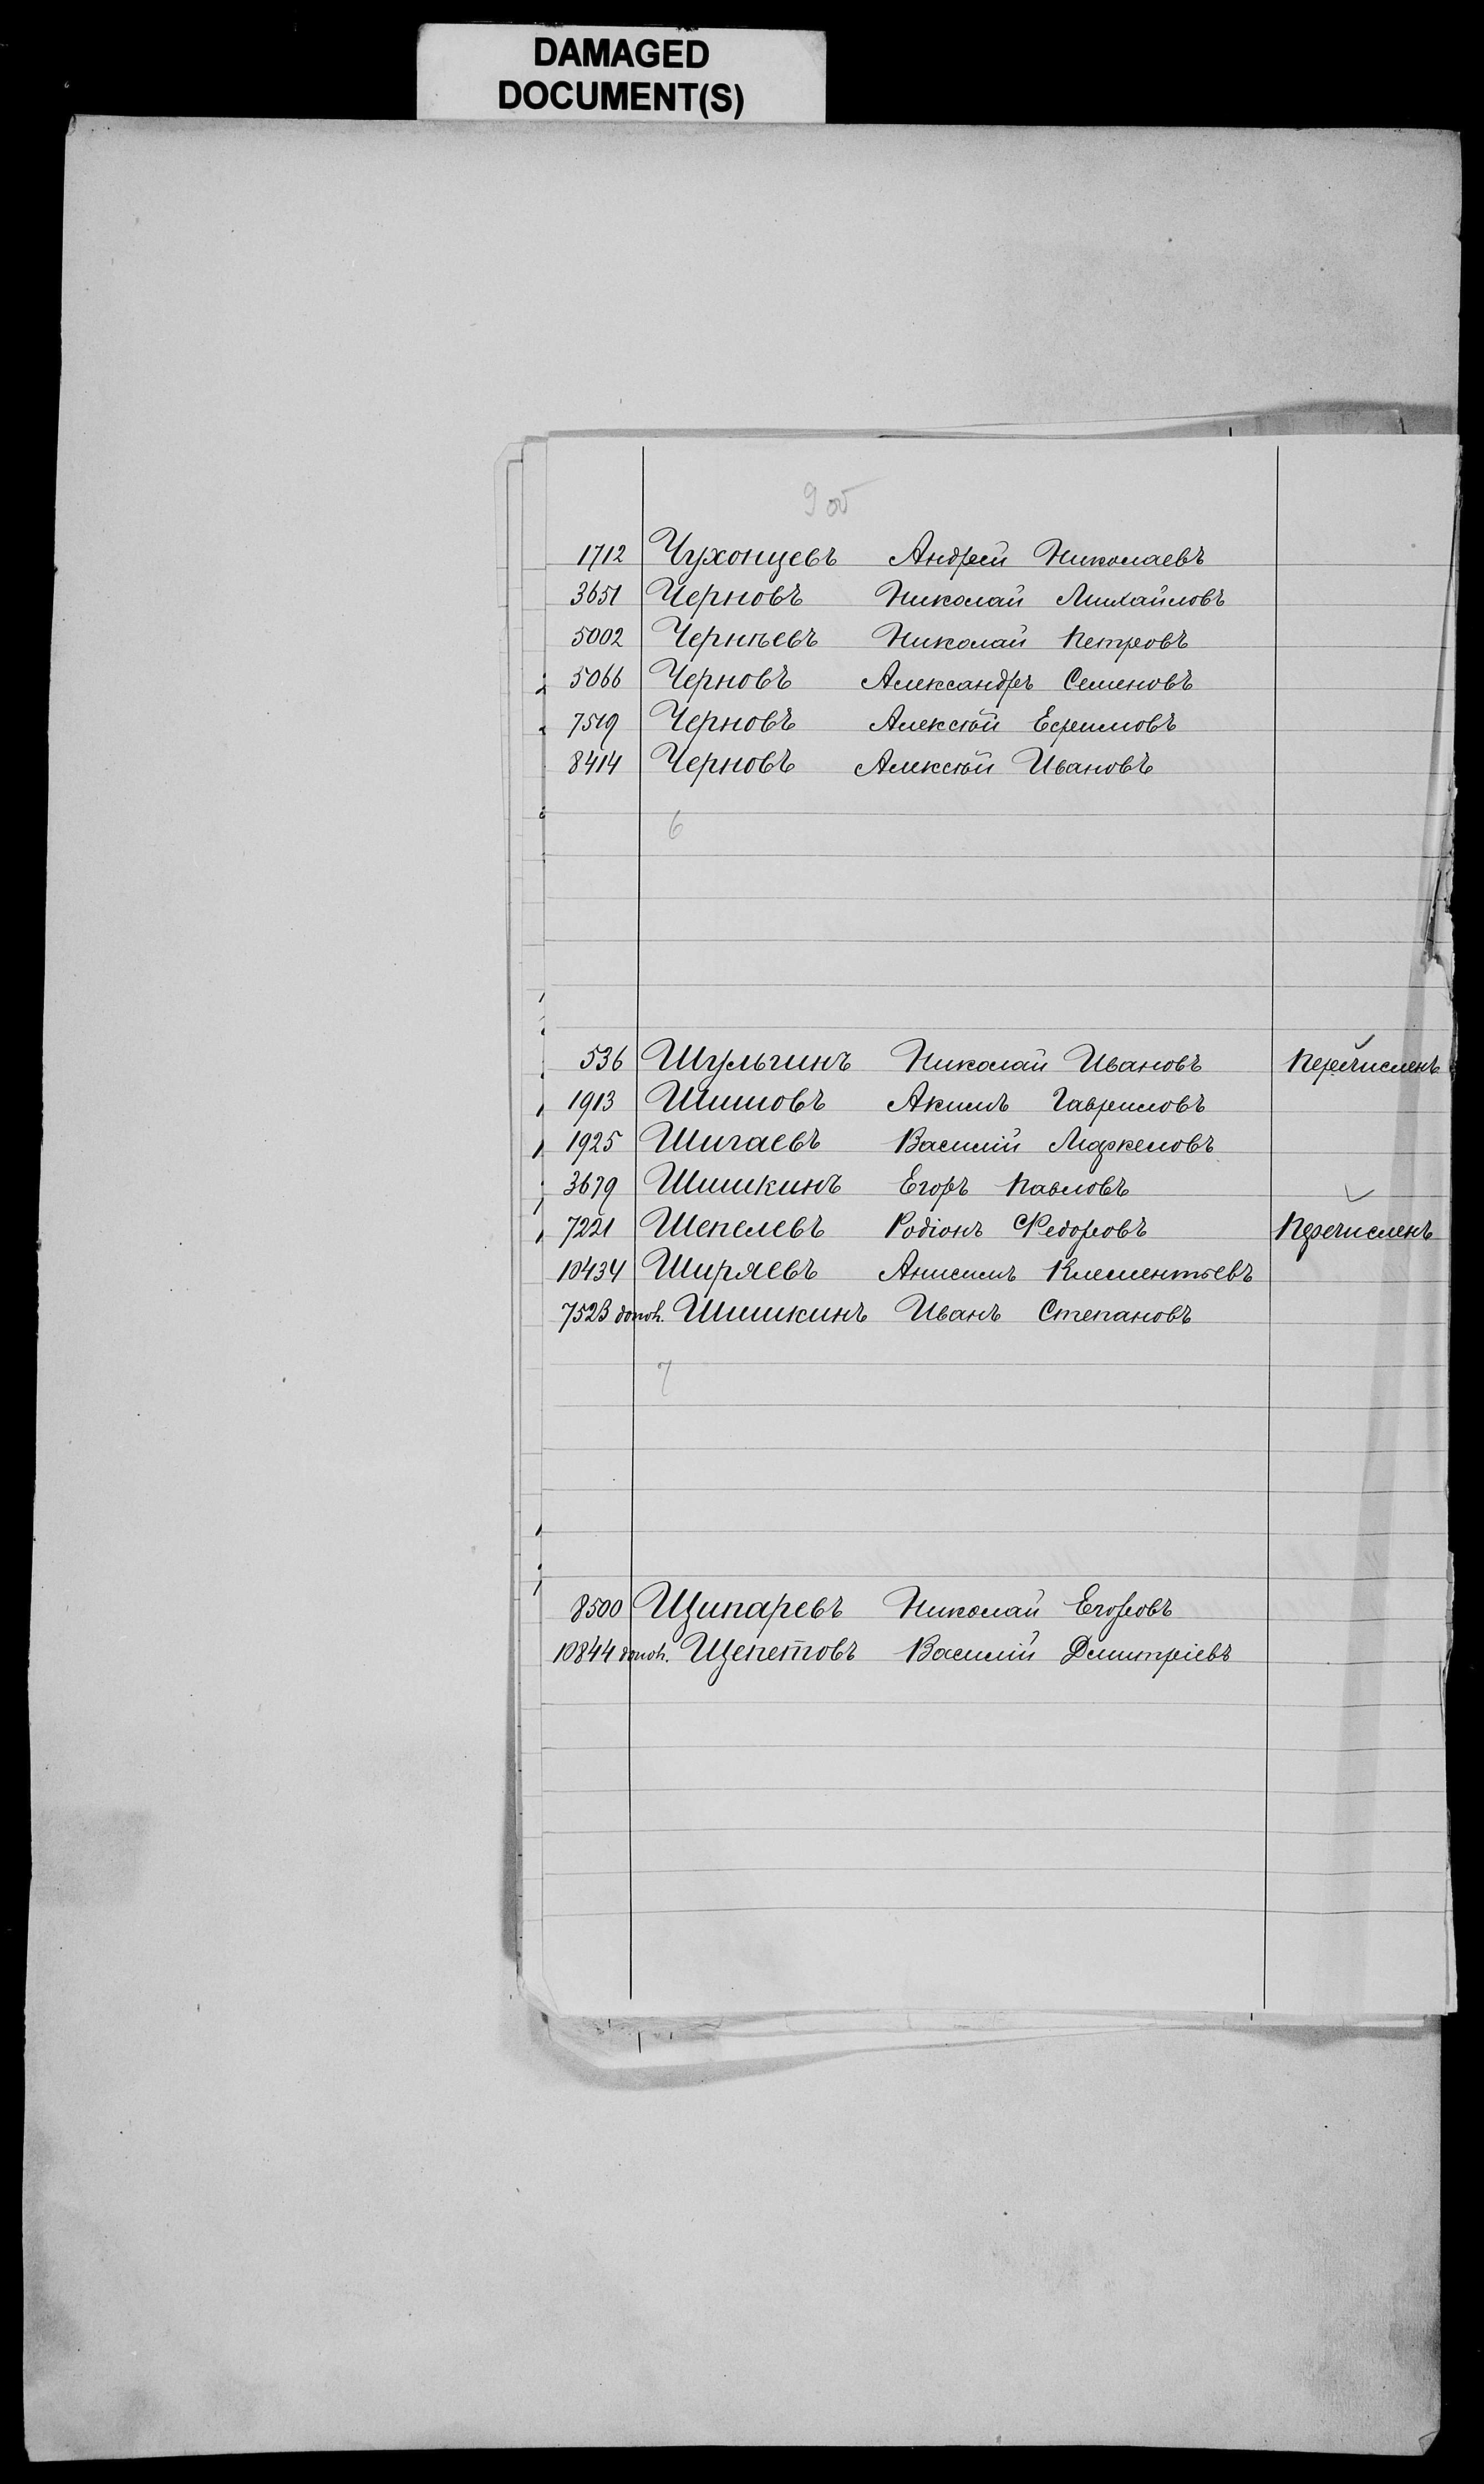 DAMAGED
DOCUMENT(S)
9 об
1712 Чухонцевъ Андрей Николаевъ
3651 Черновъ Николай Михайловъ
5002 Чернѣевъ Николай Петровъ
5066 Черновъ Александръ Семеновъ
7519 Черновъ Алексѣй Ефремовъ
8414 Черновъ Алексѣй Ивановъ
6
536 Шульгинъ Николай Ивановъ Перечисленъ
1913 Шиловъ Акимъ Гавриловъ
1925 Шигаевъ Василій Маркеловъ
3679 Шишкинъ Егоръ Павловъ
7221 Шепелевъ Родіонъ Федоровъ Перечисленъ
10434 Ширяевъ Анисимъ Клементьевъ
7523 дополн. Шишкинъ Иванъ Степановъ
7
8500 Щипаревъ Николай Егоровъ
10844 дополн. Щепетовъ Василій Дмитріевъ